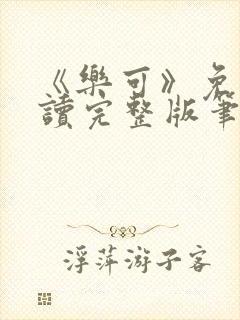 《樂可》免
讀完整版筆
浮萍游子客